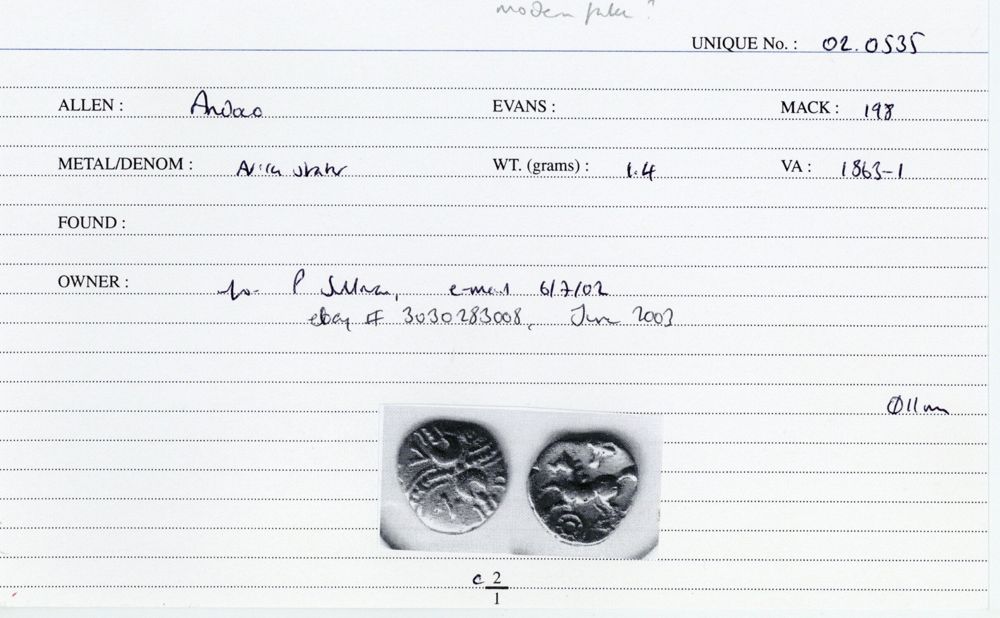 modern fake?
UNIQUE No. : 02.0535
ALLEN : Andoco EVANS : MACK : 198
METAL/DENOM : WT. (grams) : 1.4 VA : 1863-1
FOUND :
OWNER : P e-mail 6/7/02
ebay # 3030283008, June 2003
Ø11mm
c 2/1